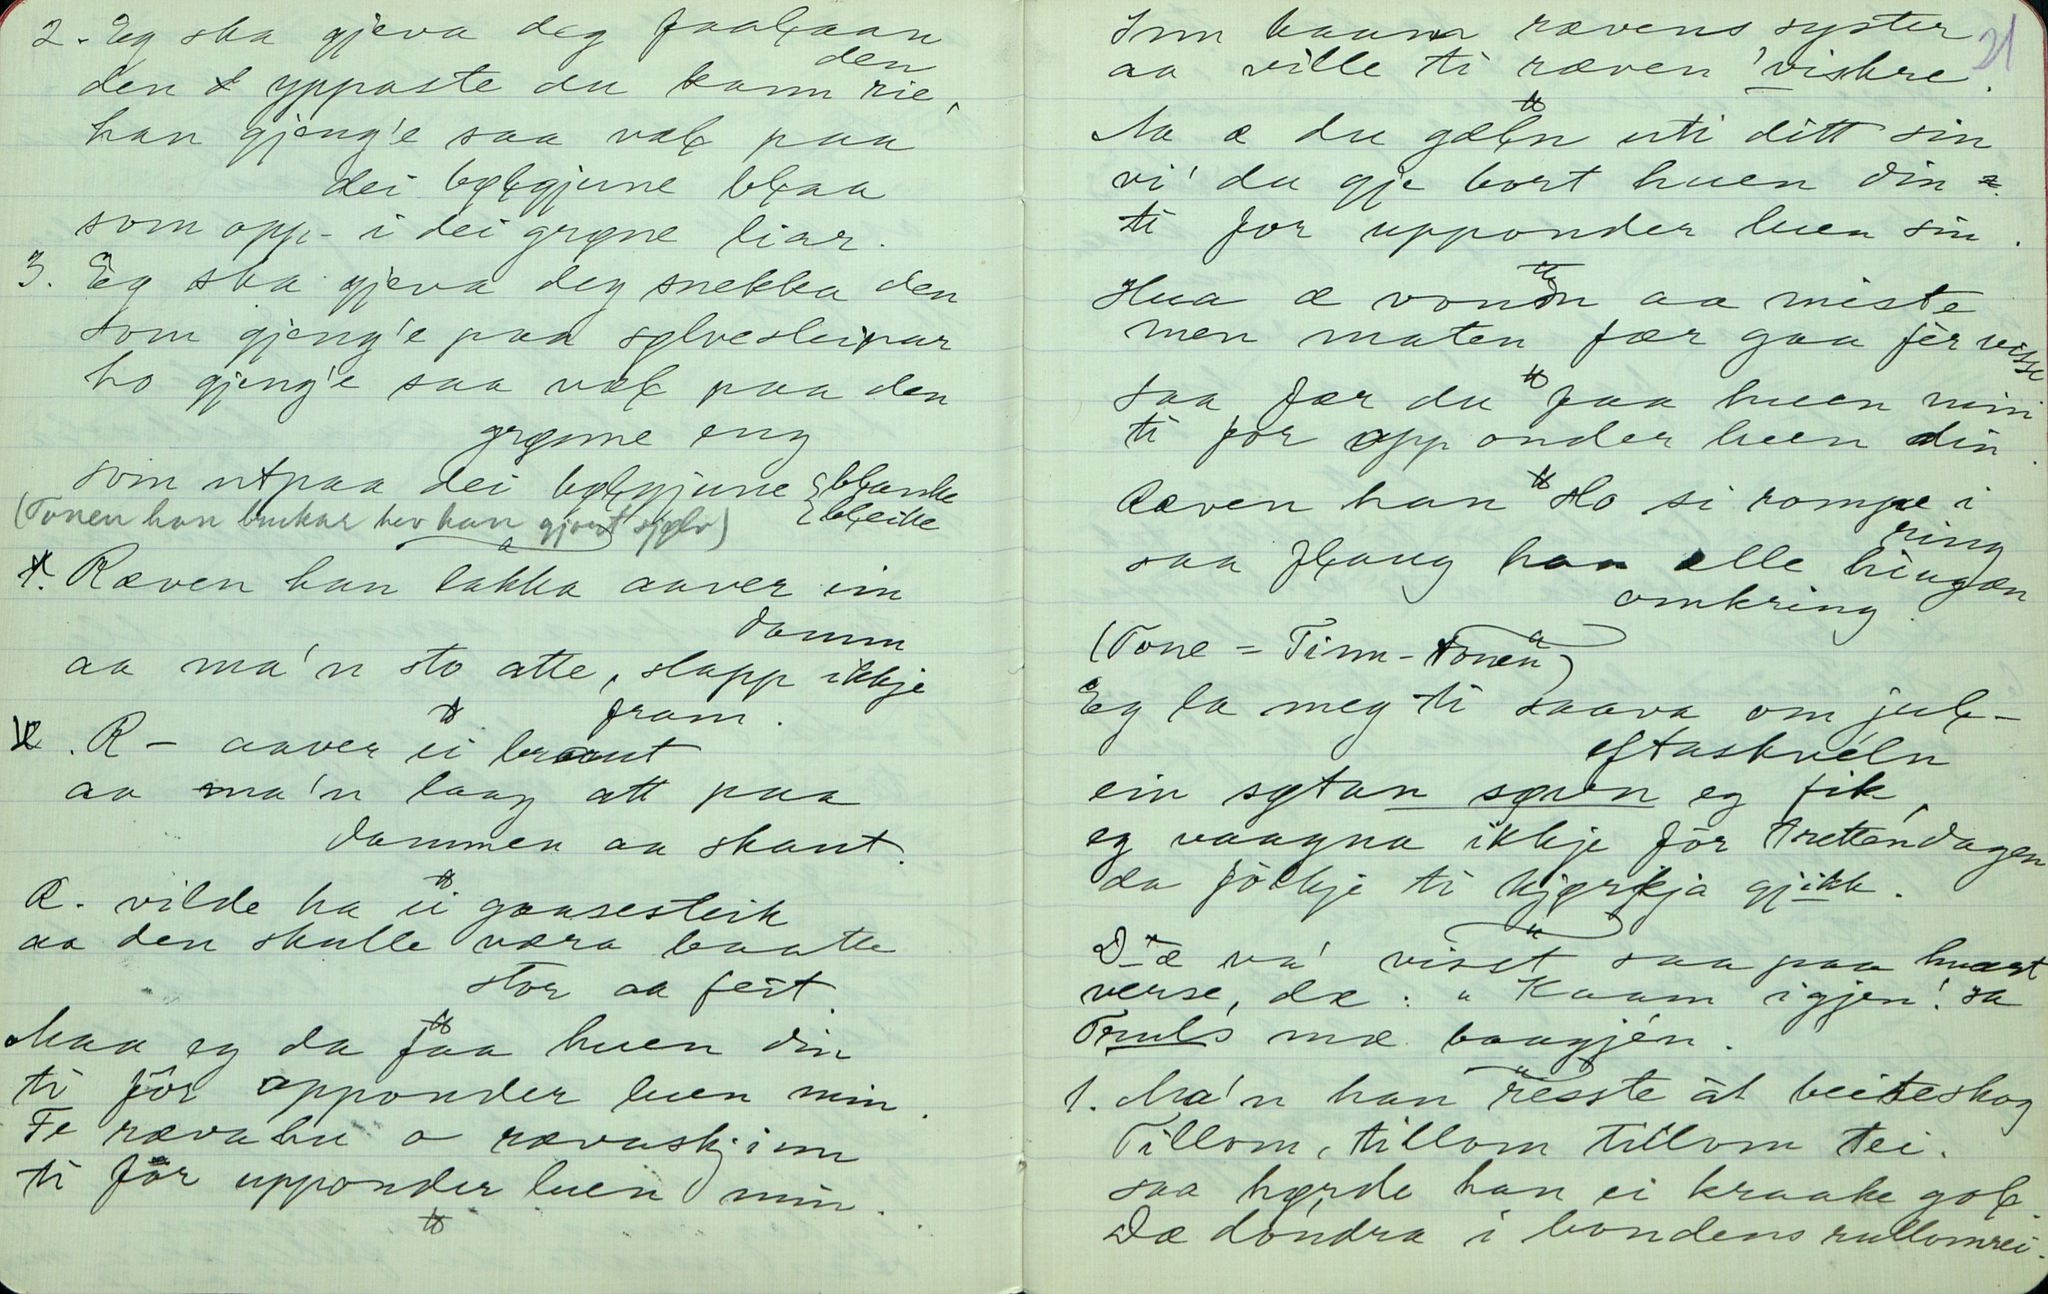 2. Eg ska gjeva deg faalaan
den
den yppaste du kann rie,
han gjeng'e saa vał paa
dei bøłgjune błaa
som opp- i dei grøne liar.
3. Eg ska gjeva deg snekka den
som gjeng'e paa sylvesleipar
ho gjeng'e saa vał paa den
grøne eng
som utpaa dei bøłgjune błanke
błeike
(Tonen han brukar hev han gjort sjølv)
Ræven han lakka aaver ein
damm
aa ma'n sto atte, slapp ikkje
fram.
R – aaver ei braut
aa ma'n laag att paa
dammen aa skaut.
R. vilde ha ei gaasesteik
aa den skulle væra baatte
stor aa feit.
Maa eg da faa huen din
ti fôr opponder luen min.
Fe rævahu o rævaskjinn
ti fôr upponder luen min.
21
Inn kaam rævens syster
aa ville ti ræven 'viskre.
Na æ du gałn uti ditt sin
vi' du gje bort huen din
ti for upponder luen sin.
Hua æ vond aa miste
men maten fær gaa fer visse
saa fær du faa huen min
ti for opponder luen din.
Ræven han slo si rompe i
ring
saa fłaug han alle hiugæn
omkring
(Tone = Tinn-tonen)
Eg la meg ti saava om juł-
eftaskveln
ein søtan søvn eg fik,
eg vaagna ikkje för trettendagen
da folkje ti kjørkja gjikk.
D æ va' viset saa paa hvart
verse, dæ: "Kaam igjen! sa
Truls mæ baagjen.
1. Ma'n han resste åt beiteskog
Tillom, tillom tillom tei.
saa hørde han ei kraake goł
Dæ dondra i bondens rullomrei.